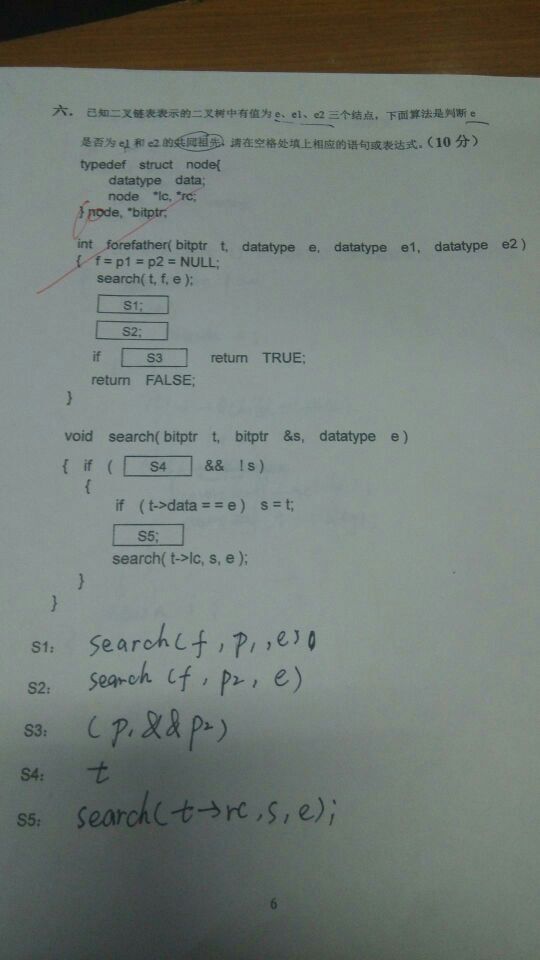 六. 已知二叉链表表示的二叉树中有值为 e、e1、e2 三个结点，下面算法是判断 e
是否为 e1 和 e2 的共同祖先，请在空格处填上相应的语句或表达式。（10 分）
typedef struct node{
datatype data;
node *lc, *rc;
} node, *bitptr;
int forefather( bitptr t, datatype e, datatype e1, datatype e2 )
{ f = p1 = p2 = NULL;
search( t, f, e );
S1;
S2;
if S3 return TRUE;
return FALSE;
}
void search( bitptr t, bitptr &s, datatype e )
{ if ( S4 && !s )
{
if ( t->data == e ) s = t;
S5;
search( t->lc, s, e );
}
}
S1: search(f, p1, e);
S2: search (f, p2, e)
S3: (p1 && p2)
S4: t
S5: search(t->rc, s, e);
6